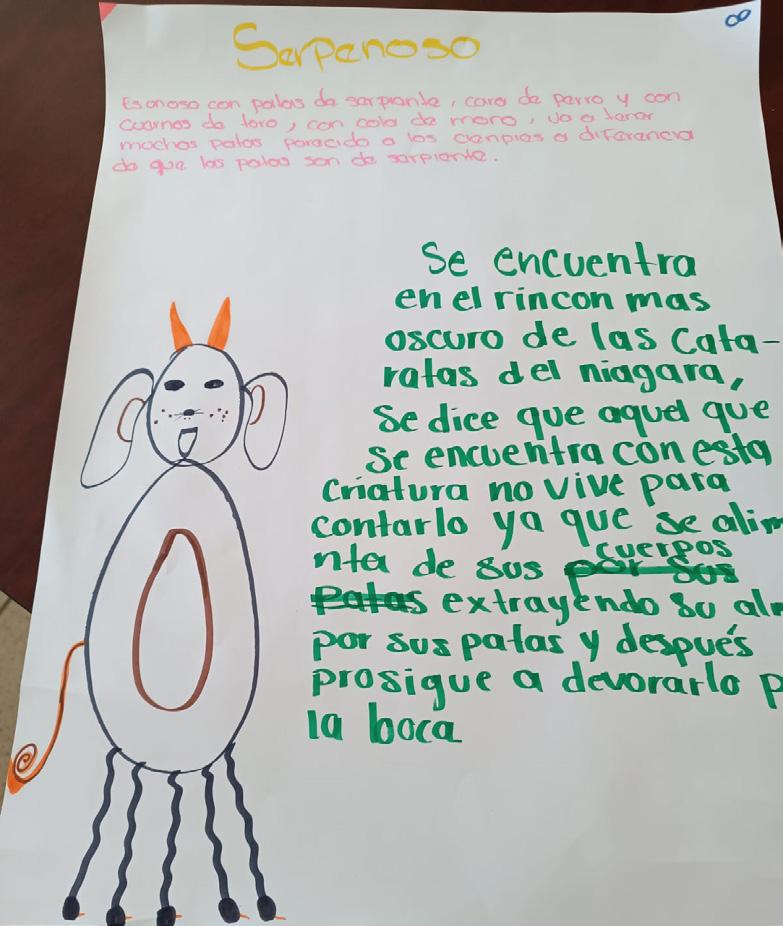 Serpenoso
8
Es onoso con patas de sarpiante, cara de perro y con
cuernos de toro, con cola de mono, va a tener
muchas patas paracido a los cienpies a diferencia
de que las patas son de sarpiente.
Se encuentra
en el rincon mas
oscuro de las Cata-
ratas del niagara,
se dice que aquel que
se encuentra con esta
criatura no vive para
contarlo ya que se alim
nta de sus cuerpos
por sus
patas extrayendo su al
por sus patas y después
prosigue a devorarlo p
la boca